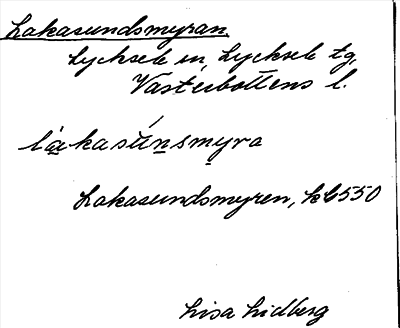 Lakasundsmyran.
Lycksele sn, Lycksele tg,
Västerbottens l.
Lakasundsmyren, kb 550
Lisa Lidberg